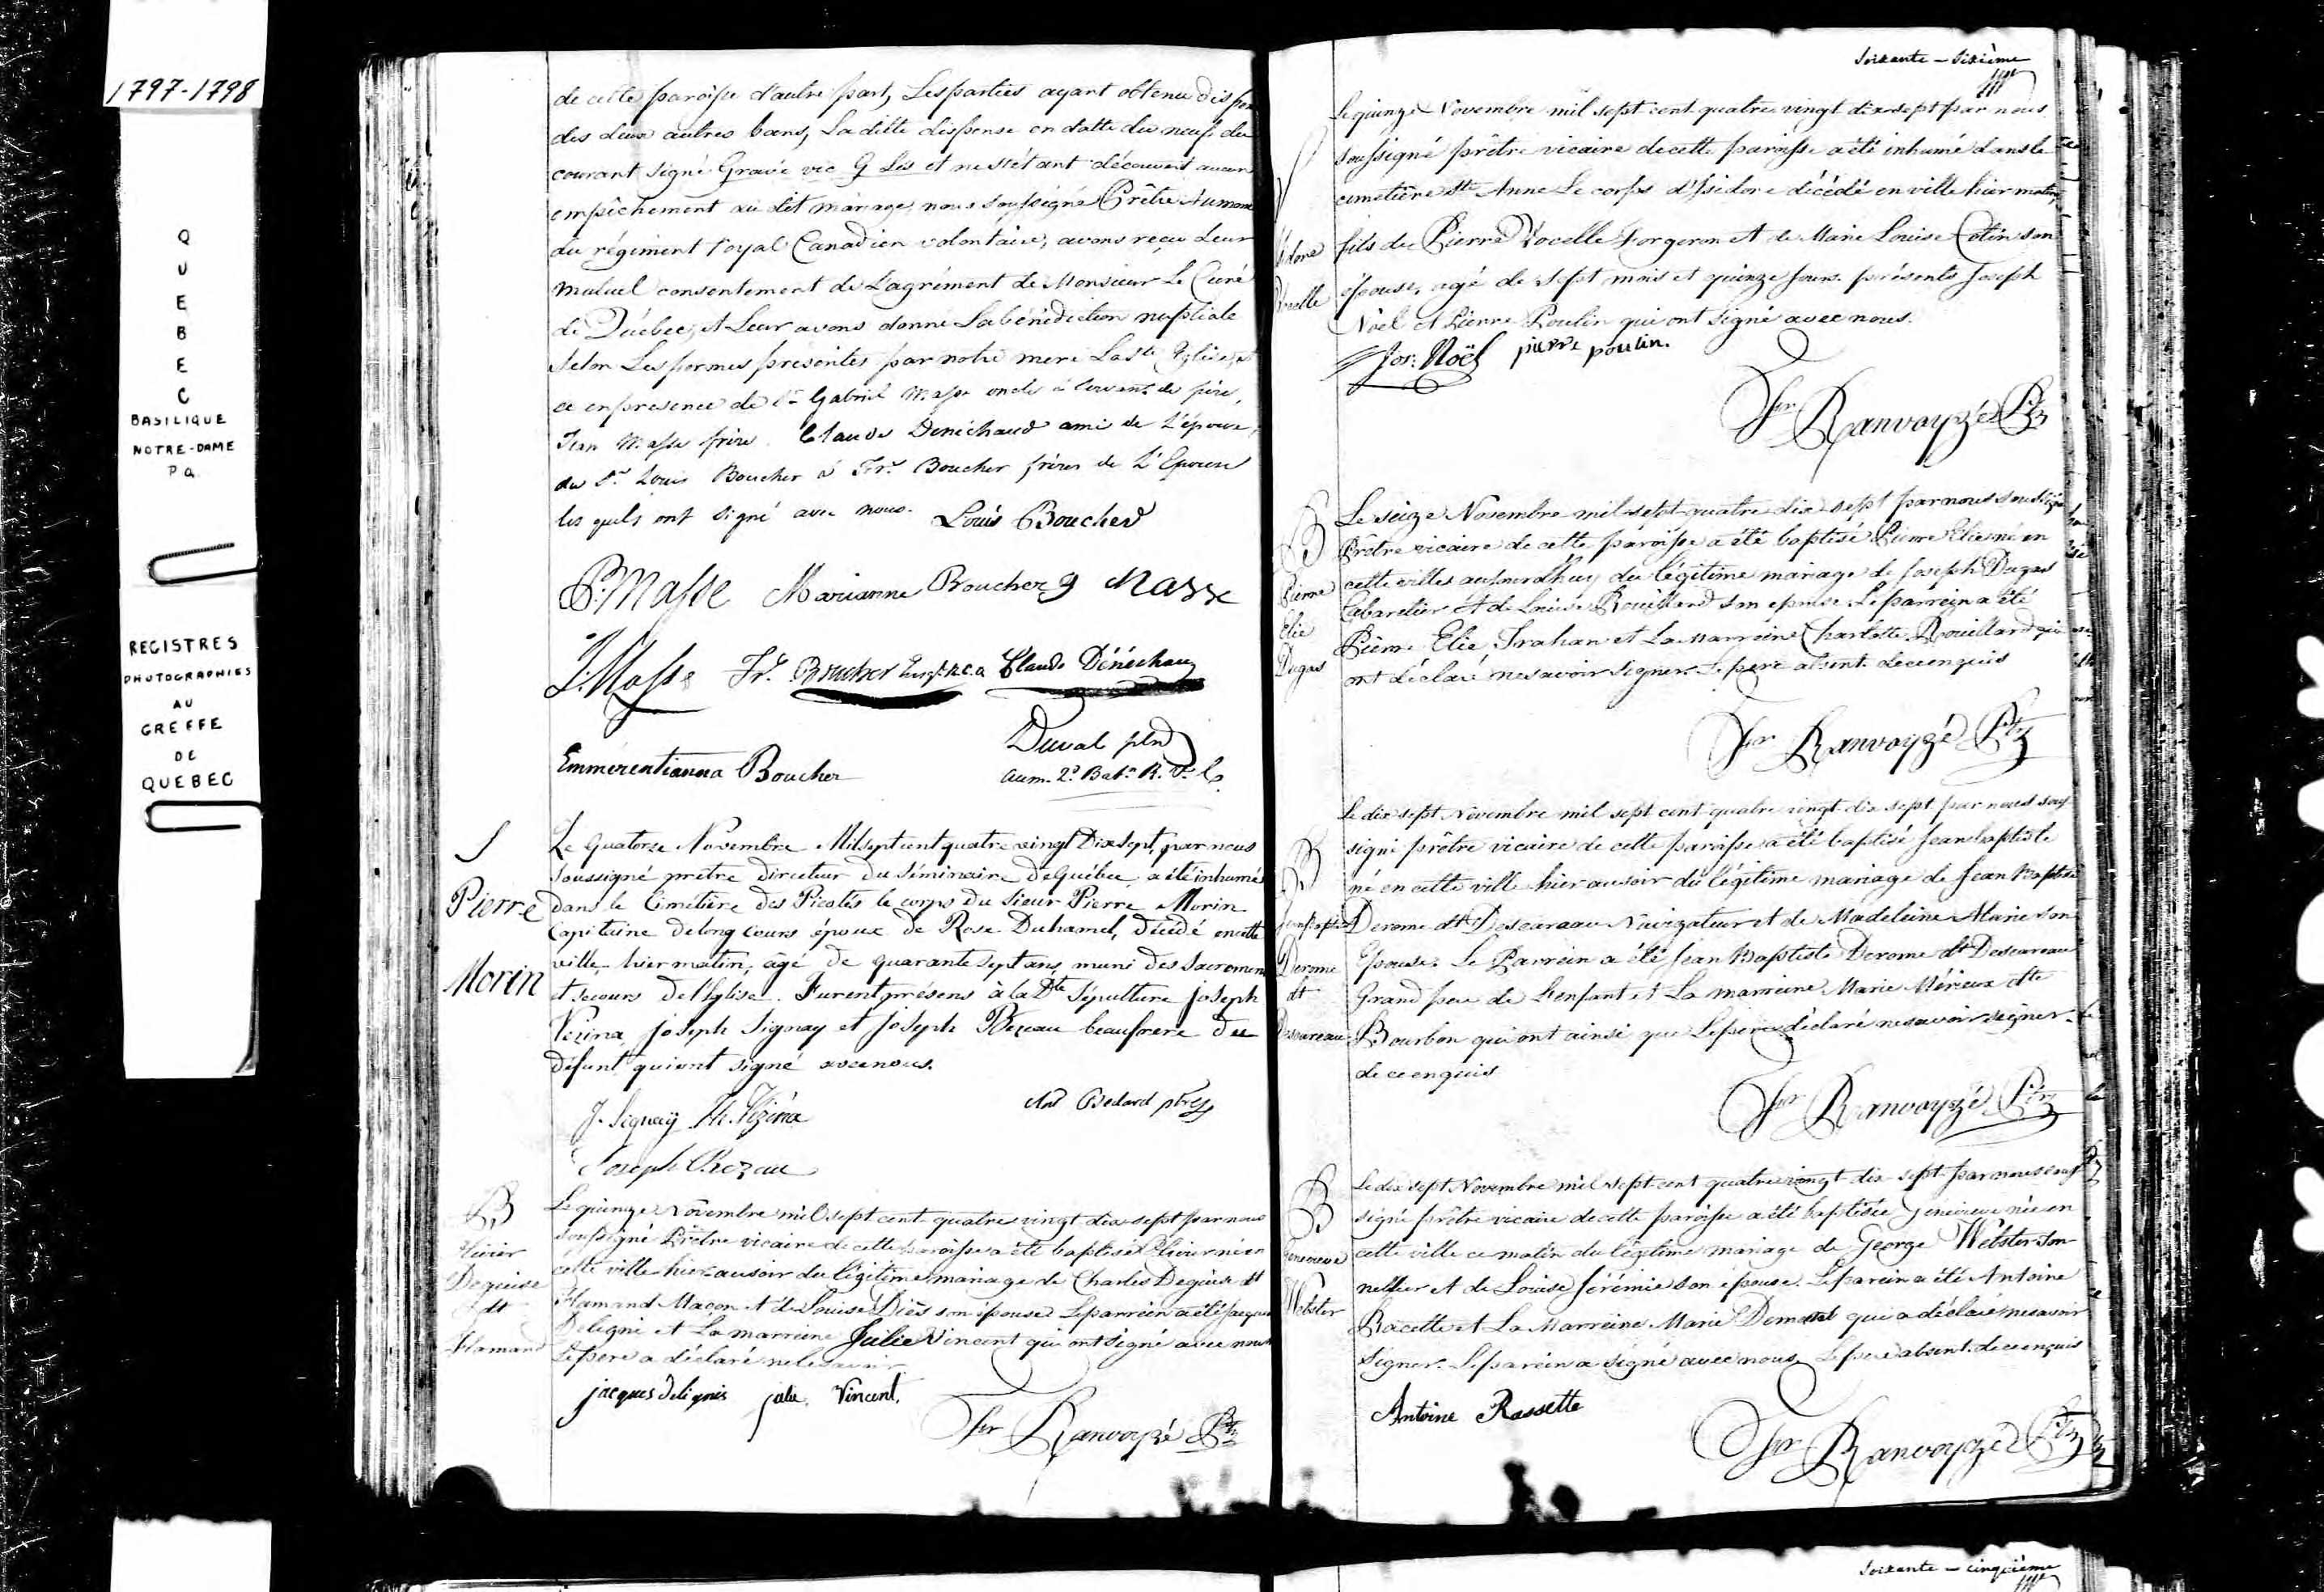 1797-1798
QUEBEC
BASILIQUE
NOTRE-DAME
P.Q.
REGISTRES
PHOTOGRAPHIES
AU
GREFFE
DE
QUEBEC
de cette paroisse d'autre part, Les parties ayant obtenu dispen
des deux autres bans, La ditte dispense en datte du neuf du
courant signé Gravé vic G Les et ne s'étant découvert aucun
empêchement au dit mariage, nous soussigné Prêtre Aumon
du régiment royal Canadien volontaire, avons reçu Leur
mutuel consentement de L'agrément de Monsieur Le Curé
de Québec, et Leur avons donné La bénédiction nuptiale
selon Les formes présentés par notre mere La Ste Eglise, et
ce en presence de Sr Gabriel Masse oncle de père,
Jean Masse frère Claude Denéchaud ami de L'époux,
du Sr Louis Boucher & Frs Boucher frères de L'Epouse
les quels ont signé avec nous. Louis Boucher
P. Masse Marianne Boucher g Masse
J. Masse Fr. Boucher Claude Dénéchau
Emmérentianna Boucher
Duval ptre
aum. 2d Batn R. V. C.
S
Pierre
Morin
Le Quatorze Novembre Mil sept cent quatre vingt Dix Sept, par nous
soussigné prêtre directeur du Séminaire De Québec a été inhumé
dans le Cimetière Des Picotés le corps du Sieur Pierre Morin
Capitaine de long cours époux de Rose Duhamel, Décédé en cette
ville hier matin, âgé de quarante sept ans, muni des sacremen
et secours de l'Eglise. Furent présens à la Dte Sépulture joseph
Vézina, joseph Signay et joseph Bezeau beaufrere du
défunt qui ont signé avec nous.
J. Signaÿ Vézina Ant Bedard ptre
Joseph Bezeau
B
Olivier
Deguise
dt
Flamand
Le quinze Novembre mil sept cent quatre vingt dix sept par nous
soussigné Prêtre vicaire de cette paroisse a été baptisé Olivier né en
cette ville hier au soir du légitime mariage de Charles Deguise dt
Flamand Maçon et de Louise Diès son épouse Le parrein a été Jacques
Deligni et La marreine Julie Vincent qui ont signé avec nous
Le père a déclaré ne le savoir
jacques delignis julie Vincent.
Fer Ranvoyzé Ptre
Soixante-Sixième
S
Isidore
Vocelle
Le quinze Novembre mil sept cent quatre vingt dix sept par nous
soussigné prêtre vicaire de cette paroisse a été inhumé dans le
cimetière Ste Anne Le corps d'Isidore décédé en ville hier matin,
fils de Pierre Vocelle Forgeron et de Marie Louise Cotin son
épouse, agé de sept mois et quinze jours. présents Joseph
Noël et Pierre Poulin qui ont signé avec nous.
Jos: Noël pierre poulin.
Fer Ranvoyzé Ptre
B
Pierre
Elie
Dugas
Le seize Novembre mil sept quatre dix sept par nous soussigné
Prêtre vicaire de cette paroisse a été baptisé Pierre Elie né en
cette ville aujourdhuy du légitime mariage de Joseph Dugas
Cabaretier et de Louise Rouillard son epouse. Le parrein a été
Pierre Elie Trahan et La marreine Charlotte Rouillard qui
ont déclaré ne savoir signer. Le pere absent de ce enquis
Fer Ranvoyzé Ptre
B
Jean Baptiste
Derome
dt
Descareau
Le dix sept Novembre mil sept cent quatre vingt dix sept par nous sous
signé prêtre vicaire de cette paroisse a été baptisé Jean baptiste
né en cette ville hier au soir du légitime mariage de Jean Baptiste
Derome dt Descareau Navigateur et de Madeleine Marie son
Epouse. Le Parrein a été Jean Baptiste Derome dt Descareau
Grand pere de L'enfant et La marreine Marie Mérieux dte
Bourbon qui ont ainsi que Le père déclaré ne savoir signer.
de ce enquis
Fer Ranvoyzé Ptre
B
Genevieve
Webster
Le dix sept Novembre mil sept cent quatre vingt dix sept par nous sous
signé prêtre vicaire de cette paroisse a été baptisée Genevieve née en
cette ville ce matin du légitime mariage de George Webster Son
nettier et de Louise Jérémie son épouse. Le parein a été Antoine
Racette et La Marreine Marie qui a déclaré ne savoir
Signer. Le parein a signé avec nous Le pere absent de ce enquis
Antoine Rassette
Fer Ranvoyzé Ptre
Soixante-cinquième